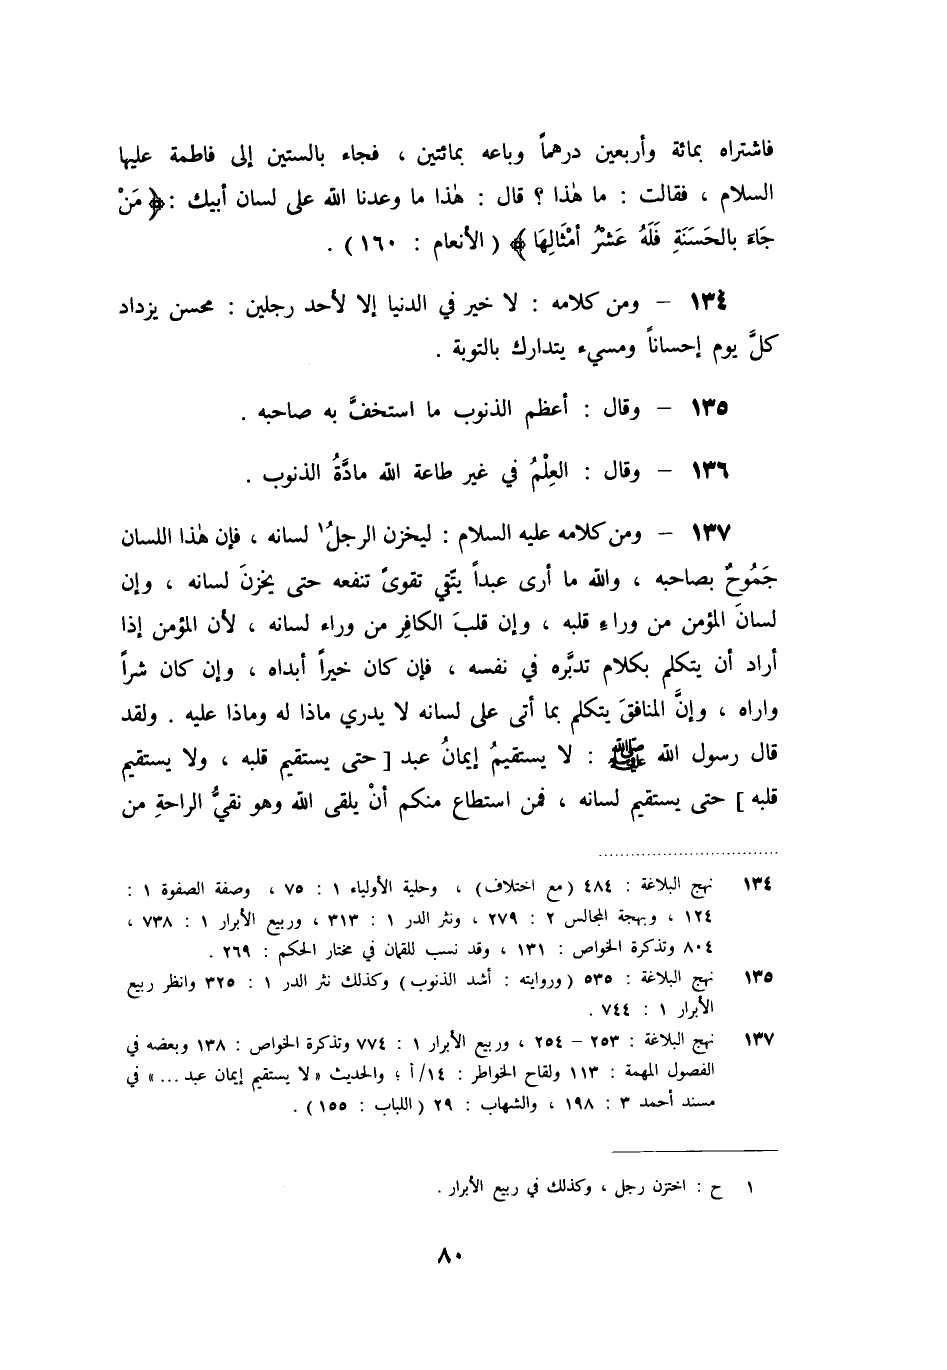 فاشتراه بمائة وأربعين درهماً وباعه بمائتين ، فجاء بالستين إلى فاطمة عليها
السلام ، فقالت : ما هٰذا ؟ قال : هٰذا ما وعدنا الله على لسان أبيك : ﴿ مَنْ
جَاءَ بالحَسَنَةِ فَلَهُ عَشْرُ أمْثَالِهَا ﴾ ( الأنعام : ١٦٠ ) .
١٣٤ – ومن كلامه : لا خير في الدنيا إلا لأحد رجلين : محسن يزداد
كلَّ يوم إحساناً ومسيء يتدارك بالتوبة .
١٣٥ – وقال : أعظم الذنوب ما استخفَّ به صاحبه .
١٣٦ – وقال : العِلْمُ في غير طاعة الله مادَّةُ الذنوب .
١٣٧ – ومن كلامه عليه السلام : ليخزن الرجلُ١ لسانه ، فإن هٰذا اللسان
جَمُوحٌ بصاحبه ، والله ما أرى عبداً يتّقي تقوىً تنفعه حتى يخزنَ لسانه ، وإن
لسانَ المؤمن من وراءِ قلبه ، وإن قلبَ الكافِر من وراء لسانه ، لأن المؤمن إذا
أراد أن يتكلم بكلام تدبَّره في نفسه ، فإن كان خيراً أبداه ، وإن كان شراً
واراه ، وإنَّ المنافقَ يتكلم بما أتى على لسانه لا يدري ماذا له وماذا عليه . ولقد
قال رسول الله ﷺ : لا يستقيمُ إيمانُ عبد [ حتى يستقيم قلبه ، ولا يستقيم
قلبه ] حتى يستقيم لسانه ، فمن استطاع منكم أنْ يلقى الله وهو نقيُّ الراحةِ من
١٣٤ نهج البلاغة : ٤٨٤ (مع اختلاف) ، وحلية الأولياء ١ : ٧٥ ، وصفة الصفوة ١ :
١٢٤ ، وبهجة المجالس ٢ : ٢٧٩ ، ونثر الدر ١ : ٣١٣ ، وربيع الأبرار ١ : ٧٣٨ ،
٨٠٤ وتذكرة الخواص : ١٣١ ، وقد نسب للقمان في مختار الحكم : ٢٦٩ .
١٣٥ نهج البلاغة : ٥٣٥ (وروايته : أشد الذنوب) وكذلك نثر الدر ١ : ٣٢٥ وانظر ربيع
الأبرار ١ : ٧٤٤ .
١٣٧ نهج البلاغة : ٢٥٣ – ٢٥٤ ، وربيع الأبرار ١ : ٧٧٤ وتذكرة الخواص : ١٣٨ وبعضه في
الفصول المهمة : ١١٣ ولقاح الخواطر : ١٤/أ ؛ والحديث « لا يستقيم إيمان عبد ... » في
مسند أحمد ٣ : ١٩٨ ، والشهاب : ٢٩ ( اللباب : ١٥٥ ) .
١ ح : اختزن رجل ، وكذلك في ربيع الأبرار .
٨٠